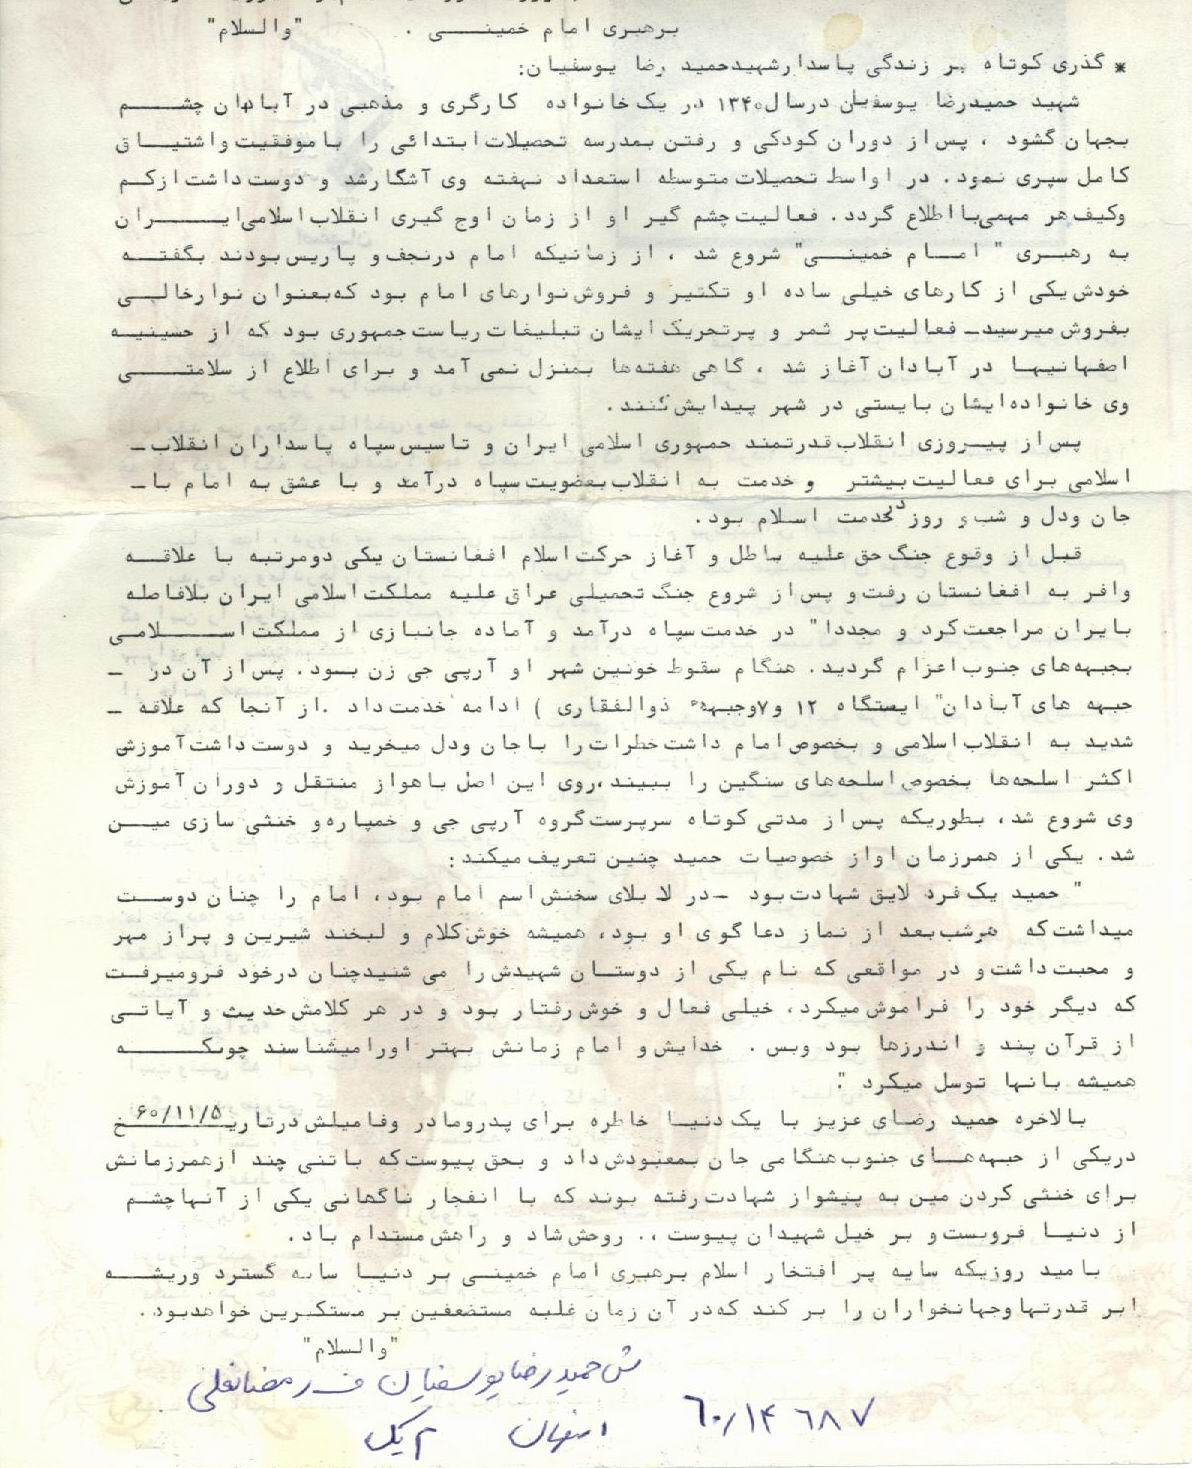 برهبری امام خمینــــی . "والسلام"
* گذری کوتاه بر زندگی پاسدارشهیدحمید رضا یوسفیان:
شهید حمیدرضا یوسفیان درسال۱۳۴۰ در یک خانواده کارگری و مذهبی در آبادان چشـــم
بجهان گشود ، پس از دوران کودکی و رفتن بمدرسه تحصیلات ابتدائی را با موفقیت واشتیــاق
کامل سپری نمود. در اواسط تحصیلات متوسطه استعداد نهفته وی آشگارشد و دوست داشت ازکـم
وکیف هر مهمی با اطلاع گردد. فعالیت چشم گیر او از زمان اوج گیری انقلاب اسلامی ایـــران
به رهبـری " امــام خمینــی" شروع شد ، از زمانیکه امام درنجف و پاریس بودند بگفتــه
خودش یکی از کارهای خیلی ساده او تکثیر و فروش نوارهای امام بود که بعنوان نوارخالــی
بفروش میرسیدـ فعالیت پر ثمر و پرتحریک ایشان تبلیغات ریاست جمهوری بود که از حسینیــه
اصفهانیهـا در آبادان آغاز شد ، گاهی هفته‌ها بمنزل نمی آمد و برای اطلاع از سلامتــی
وی خانواده ایشان بایستی در شهر پیدایش کنند.
پس از پیــروزی انقلاب قدرتمند جمهوری اسلامی ایران و تاسیس سپاه پاسداران انقلاب ـ
اسلامی برای فعالیت بیشتر و خدمت به انقلاب بعضویت سپاه درآمد و با عشق به امام با ـ
جان ودل و شب و روز در خدمت اسـلام بود.
قبل از وقوع جنگ حق علیه باطل و آغاز حرکت اسلام افغانستان یکی دومرتبه با علاقــه
وافر به افغانستان رفت و پس از شروع جنگ تحمیلی عراق علیه مملکت اسلامی ایران بلافاصله
بایران مراجعت کرد و مجددا" در خدمت سپاه درآمد و آماده جانبازی از مملکت اســـلامـی
بجبهه‌های جنوب اعزام گردید. هنگام سقوط خونین شهر او آرپی جی زن بـود. پس از آن در ـ
جبهه های آبادان" ایستگاه ۱۲ و ۷ وجبهه ذوالفقاری ) ادامه خدمت داد .از آنجا که علاقه ـ
شدید به انقلاب اسلامی و بخصوص امام داشت خطرات را با جان ودل میخرید و دوست داشت آموزش
اکثر اسلحه‌ها بخصوص اسلحه‌های سنگین را ببیند ،روی این اصل باهواز منتقل و دوران آموزش
وی شروع شد، بطوریکه پس از مدتی کوتاه سرپرست گروه آرپی جی و خمپاره و خنثی سازی میـن
شد. یکی از همرزمان اواز خصوصیات حمید چنین تعریف میکند:
" حمید یک فرد لایق شهادت بود ـ در لا بلای سخنش اسم امام بود، امام را چنان دوســت
میداشت که هرشب بعد از نماز دعا گوی او بود، همیشه خوش کلام و لبخند شیرین و پراز مهر
و محبت داشت و در مواقعی که نام یکی از دوستـان شهیدش را می شنیدچنان درخود فرومیرفـت
که دیگر خود را فراموش میکرد، خیلی فعال و خوش رفتار بود و در هر کلامش حدیث و آیاتـی
از قرآن پند و اندرزها بود وبس . خدایش و امام زمانش بهتر اورامیشناسند چونکـــه
همیشه بانها توسل میکرد ".
بالاخره حمید رضـای عزیز با یک دنیـا خاطره برای پدرومادر وفامیلش درتاریـــخ ۶۰/۱۱/۵
دریکی از جبهه‌هــای جنوب هنگامی جان بمعبودش داد و بحق پیوست که باتنی چند ازهمرزمانش
برای خنثی کردن مین به پیشواز شهادت رفته بوند که با انفجار ناگهانی یکی از آنهاچشم
از دنیـا فروبست و بر خیل شهیدان پیوست ،. روحش شاد و راهش مستدام باد.
بامید روزیکه سایه پر افتخار اسلام برهبری امام خمینـی بر دنیـا سایه گسترد وریشــه
ابر قدرتهاوجهانخواران را بر کند که در آن زمان غلبه مستضعفین بر مستکبرین خواهدبود.
"والسلام"
ش حمیدرضا یوسفیان ف رمضانعلی
۶۰/۱۴۶۸۷
اصفهان م یک